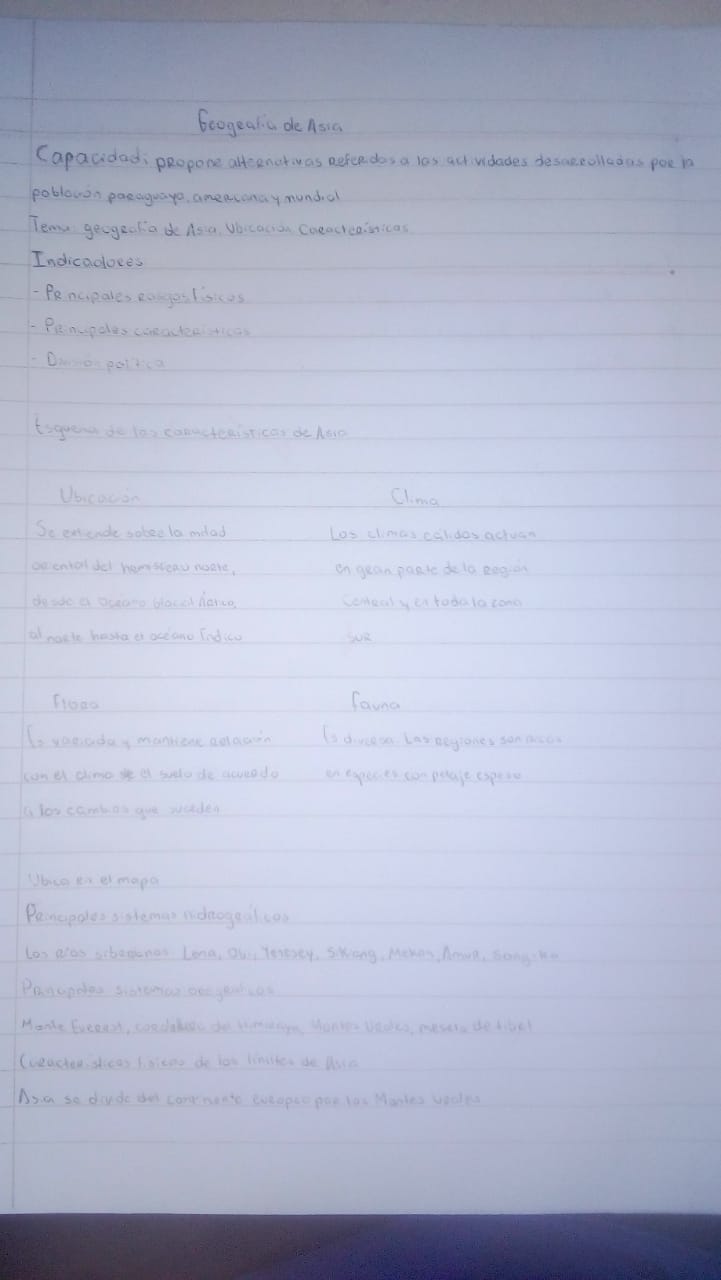 Geografía de Asia
Capacidad: propone alternativas referidas a las actividades desarrolladas por la
población paraguaya, americana y mundial
Tema: geografía de Asia. Ubicación Características
Indicadores
- Principales rasgos físicos
- Principales características
- División política
Esquema de las características de Asia
Ubicación
Se extiende sobre la mitad
oriental del hemisferio norte,
desde el océano glacial Ártico,
al norte hasta el océano Índico
Clima
Los climas cálidos actuan
en gran parte de la Región
Central y en toda la zona
sur
Flora
Es variada y mantiene relación
con el clima el suelo de acuerdo
a los cambios que suceden
Fauna
Es diversa. Las regiones son ricas
en especies con pelaje espeso
Ubica en el mapa
Principales sistemas hidrográficos
Los ríos siberianos Lena, Obi, Yenesey, Sikiang, Mekon, Amur, Song-
Principales sistemas orográficos
Monte Everest, cordillera del Himalaya, Montes Urales, meseta de tibet
Características físicas de los límites de Asia
Asia se divide del continente europeo por los Montes Urales